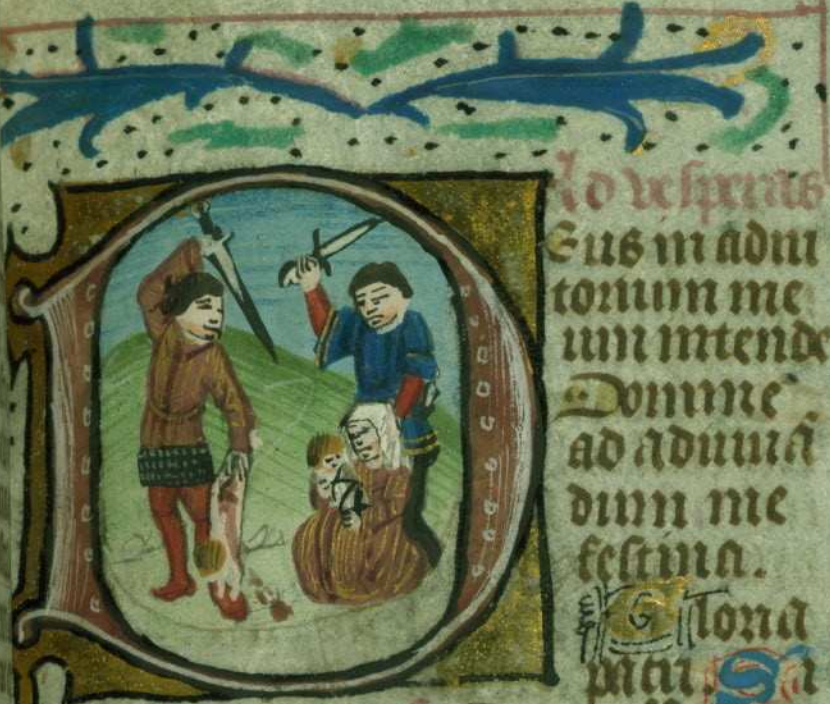 Ad vesperas
Eus in adiu
torium me
um intende
Domine
ad adiuua
dum me
festina.
Gloria
patri. S